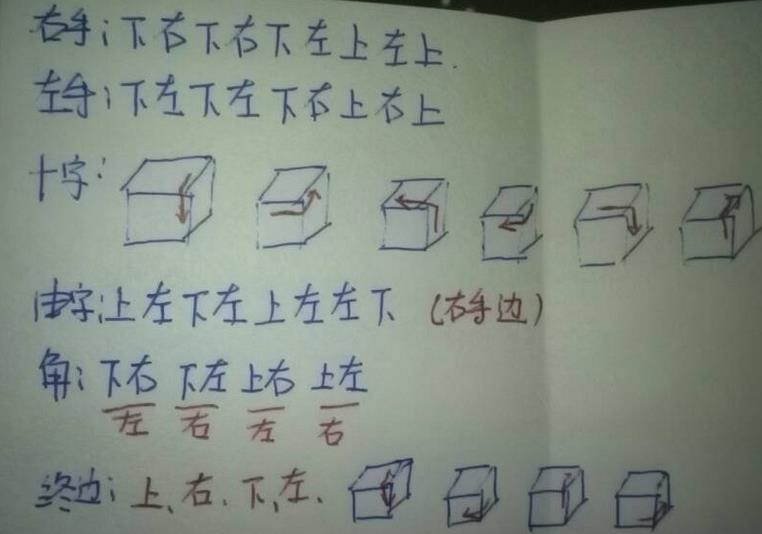 右手：下右下右下左上左上.
左手：下左下左下右上右上
十字：
由字：上左下左上左左下 (右手边)
角：下右 下左 上右 上左
左 右 左 右
终边：上、右、下、左、